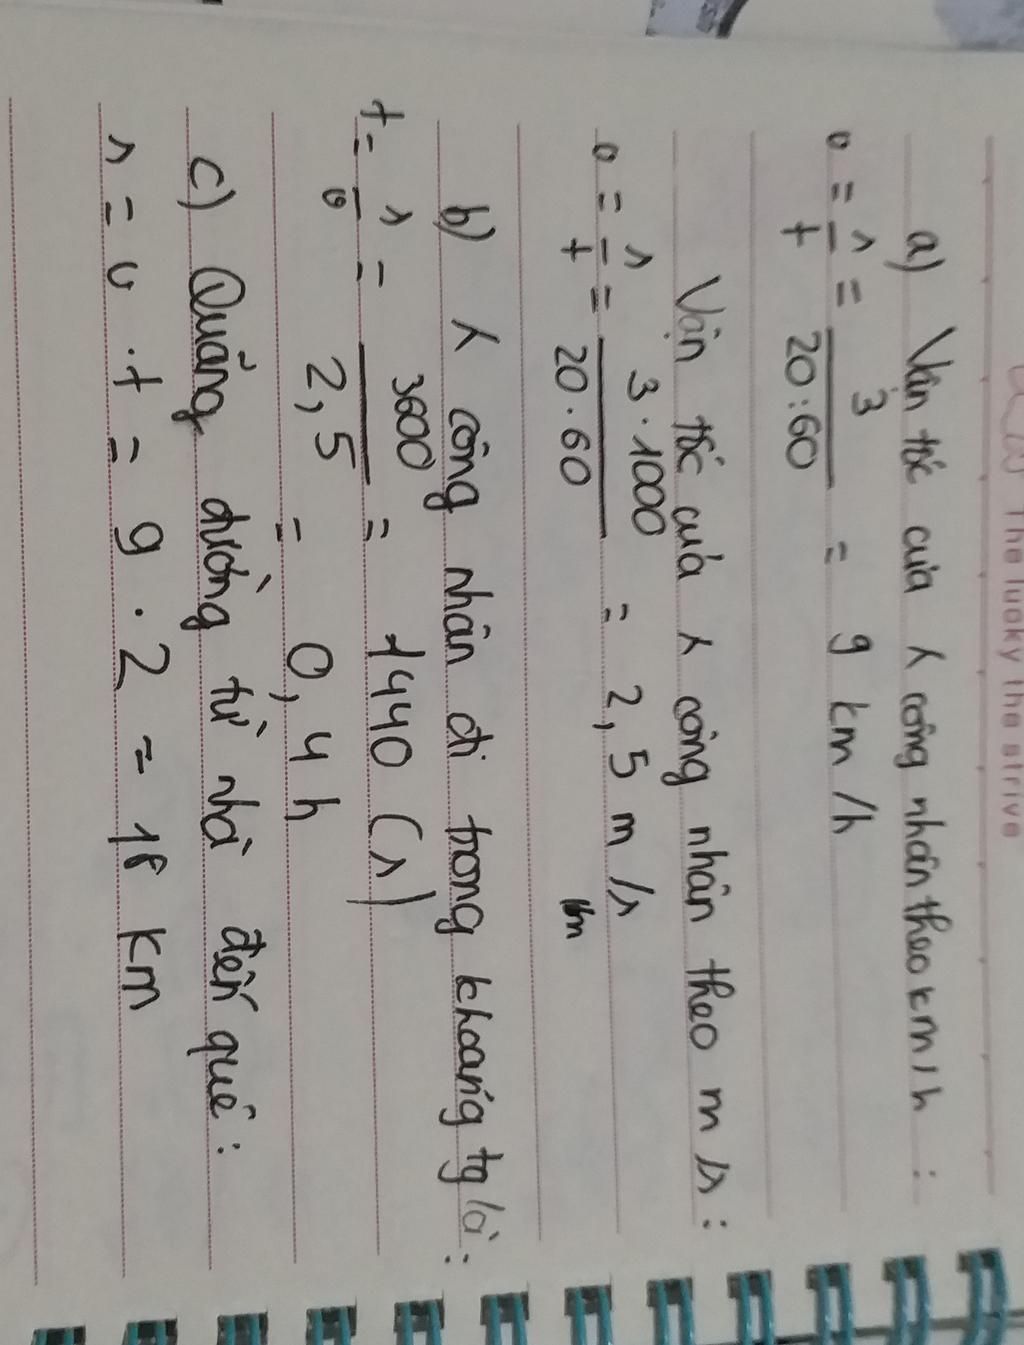 The lucky the strive
a) Vận tốc của 1 công nhân theo km/h :
v = s/t = 3/20:60 = 9 km/h
Vận tốc của 1 công nhân theo m/s :
v = s/t = 3.1000/20.60 = 2,5 m/s
b) 1 công nhân đi trong khoảng tg là :
t = s/v = 3600/2,5 = 1440 (s)
= 0,4 h
c) Quãng đường từ nhà đến quê :
s = v . t = 9 . 2 = 18 km